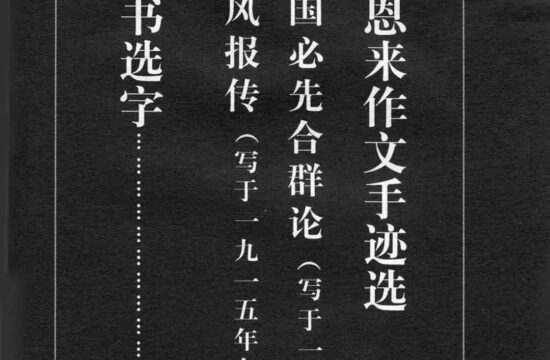 恩来作文手迹选
国必先合群论（写于一
风报传（写于一九一五年
书选字……………………